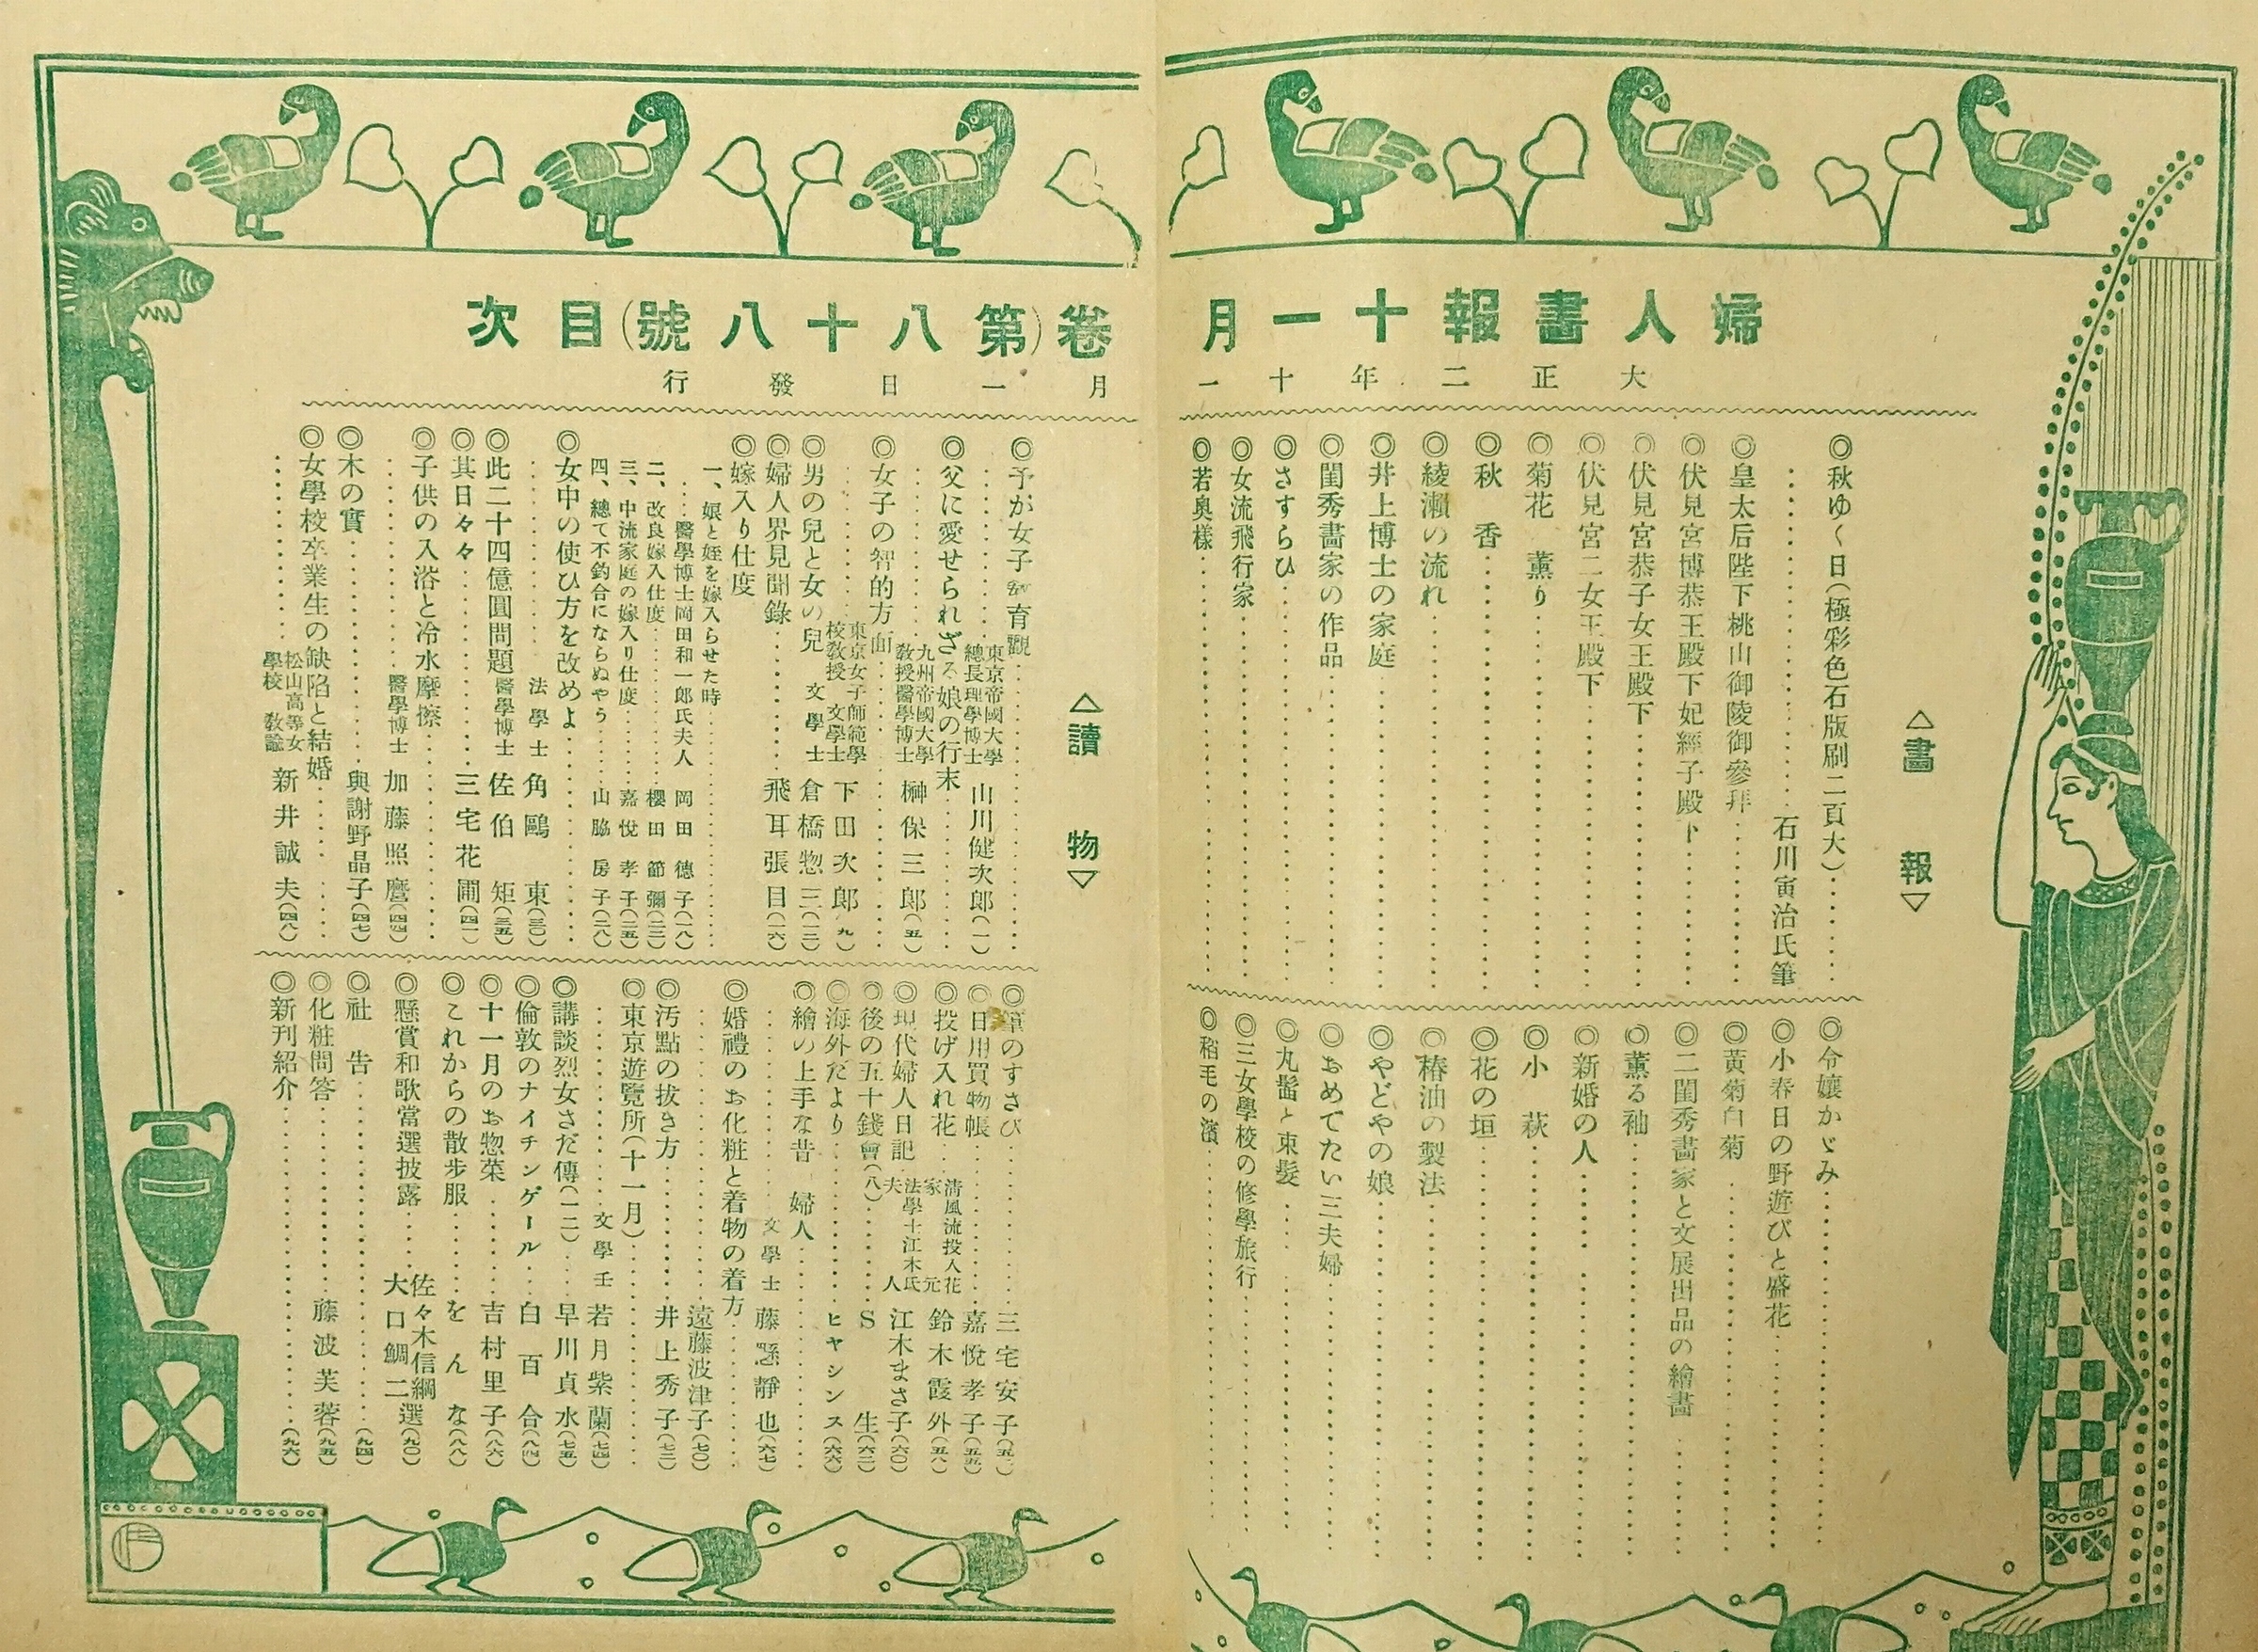 婦人畫報十一月卷(第八十八號)目次
大正二年十一月一日發行
△畫報▽
◎秋ゆく日(極彩色石版刷二頁大)……
……石川寅治氏筆
◎皇太后陛下桃山御陵御參拜……
◎伏見宮博恭王殿下妃經子殿下……
◎伏見宮恭子女王殿下……
◎伏見宮二女王殿下……
◎菊花 薫り……
◎秋 香……
◎綾瀬の流れ……
◎井上博士の家庭……
◎閨秀畫家の作品……
◎さすらひ……
◎女流飛行家……
◎若奥樣……
◎令孃かゞみ……
◎小春日の野遊びと盛花……
◎黄菊白菊……
◎二閨秀畫家と文展出品の繪畫……
◎薫る袖……
◎新婚の人……
◎小 萩……
◎花の垣……
◎椿油の製法……
◎やどやの娘……
◎おめでたい三夫婦……
◎丸髷と束髮……
◎三女學校の修學旅行……
◎稻毛の濱……
△讀物▽
◎予が女子教育觀……
……東京帝國大學總長理學博士 山川健次郎(一)
◎父に愛せられざる娘の行末……
……九州帝國大學教授醫學博士 榊保三郎(五)
◎女子の智的方面……
……東京女子師範學校教授 文學士 下田次郎(九)
◎男の兒と女の兒 文學士 倉橋惣三(一三)
◎婦人界見聞錄……飛耳張目(一六)
◎嫁入り仕度
一、娘と姪を嫁入らせた時……
……醫學博士岡田和一郎氏夫人 岡田德子(一八)
二、改良嫁入仕度……櫻田節彌(二三)
三、中流家庭の嫁入り仕度……嘉悅孝子(二五)
四、總て不釣合にならぬやう……山脇房子(二八)
◎女中の使ひ方を改めよ……
……法學士 角鷗東(三〇)
◎此二十四億圓問題 醫學博士 佐伯矩(三五)
◎其日々々……三宅花圃(四一)
◎子供の入浴と冷水摩擦……
……醫學博士 加藤照麿(四四)
◎木の實……與謝野晶子(四七)
◎女學校卒業生の缺陷と結婚……
……松山高等女學校 教諭 新井誠夫(四八)
◎筆のすさび……三宅安子(五一)
◎日用買物帳……嘉悅孝子(五五)
◎投げ入れ花……清風流投入花家元 鈴木霞外(五八)
◎現代婦人日記……法學士江木氏夫人 江木まさ子(六〇)
◎後の五十錢會(八)……S生(六二)
◎海外だより……ヒヤシンス(六六)
◎繪の上手な昔 婦人……
……文學士 藤懸靜也(六七)
◎婚禮のお化粧と着物の着方……
……遠藤波津子(七〇)
◎汚點の拔き方……井上秀子(七二)
◎東京遊覽所(十一月)……
……文學士 若月紫蘭(七四)
◎講談烈女さだ傳(一二)……早川貞水(七五)
◎倫敦のナイチンゲール……白百合(八四)
◎十一月のお惣菜……吉村里子(八六)
◎これからの散步服……をんな(八八)
◎懸賞和歌當選披露……佐々木信綱 大口鯛二選(九〇)
◎社 告……(九四)
◎化粧問答……藤波芙蓉(九五)
◎新刊紹介……(九六)